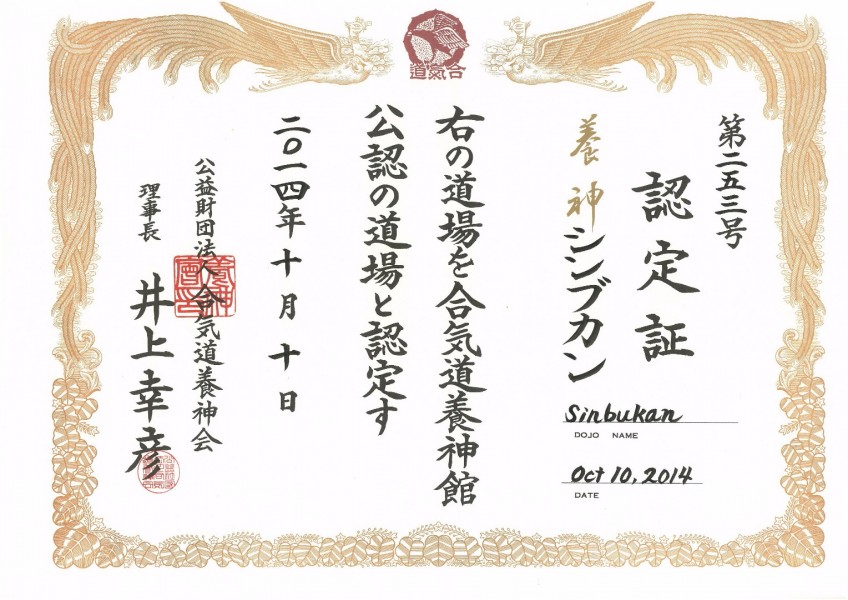 合氣道
第二五三号
認定証
養神シンブカン
Sinbukan
DOJO NAME
Oct 10, 2014
DATE
右の道場を合気道養神館
公認の道場と認定す
二〇一四年十月十日
公益財団法人合気道養神会
理事長 井上幸彦